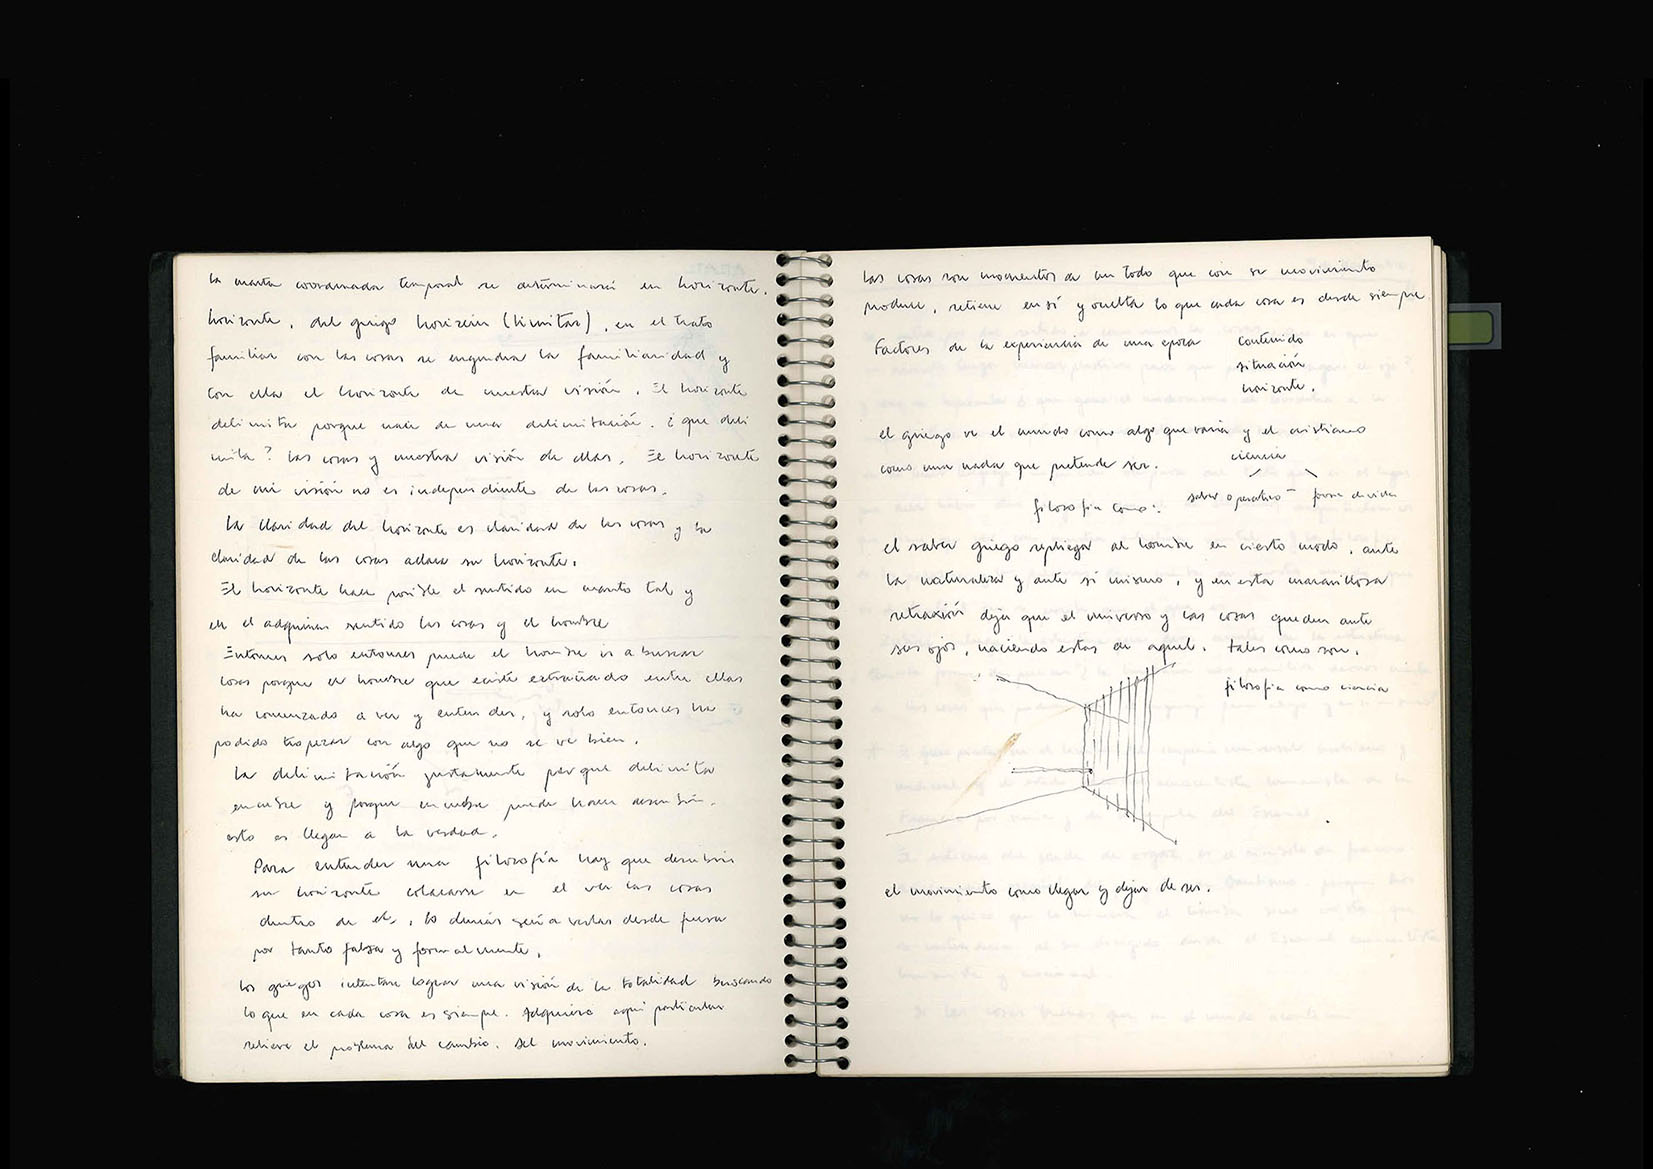 la cuarta coordenada temporal se determinará en horizonte.
horizonte, del griego horizein (limitar), en el trato
familiar con las cosas se engendra la familiaridad y
con ella el horizonte de nuestra visión. El horizonte
delimita porque nace de una delimitación. ¿que deli
mita? las cosas y nuestra visión de ellas. El horizonte
de mi visión no es independiente de las cosas.
La claridad del horizonte es claridad de las cosas y la
claridad de las cosas aclara su horizonte.
El horizonte hace posible el sentido en cuanto tal y
en el adquieren sentido las cosas y el hombre
Entonces solo entonces puede el hombre ir a buscar
cosas porque el hombre que existe extrañado entre ellas
ha comenzado a ver y entender, y solo entonces ha
podido tropezar con algo que no se ve bien.
La delimitación justamente porque delimita
encubre y porque encubre puede haber descubrir.
esto es llegar a la verdad.
Para entender una filosofía hay que descubrir
su horizonte colocarse en el ver las cosas
dentro de el. lo demás sería verlas desde fuera
por tanto falsa y formalmente.
los griegos intentan lograr una visión de la totalidad buscando
lo que en cada cosa es siempre. Adquiere aqui particular
relieve el problema del cambio. del movimiento.
las cosas son momentos de un todo que con su movimiento
produce, retiene en sí y oculta lo que cada cosa es desde siempre
Factores de la experiencia de una epoca contenido
situación
horizonte.
el griego ve el mundo como algo que varia y el cristiano
como una nada que pretende ser. ciencia
filosofia como: saber operativo forma de vida
el saber griego repliega al hombre en cierto modo, ante
la naturaleza y ante sí mismo, y en esta maravillosa
retraxión deja que el universo y las cosas queden ante
sus ojos, naciendo estas de aquel, tales como son.
filosofia como ciencia
el movimiento como llegar y dejar de ser.